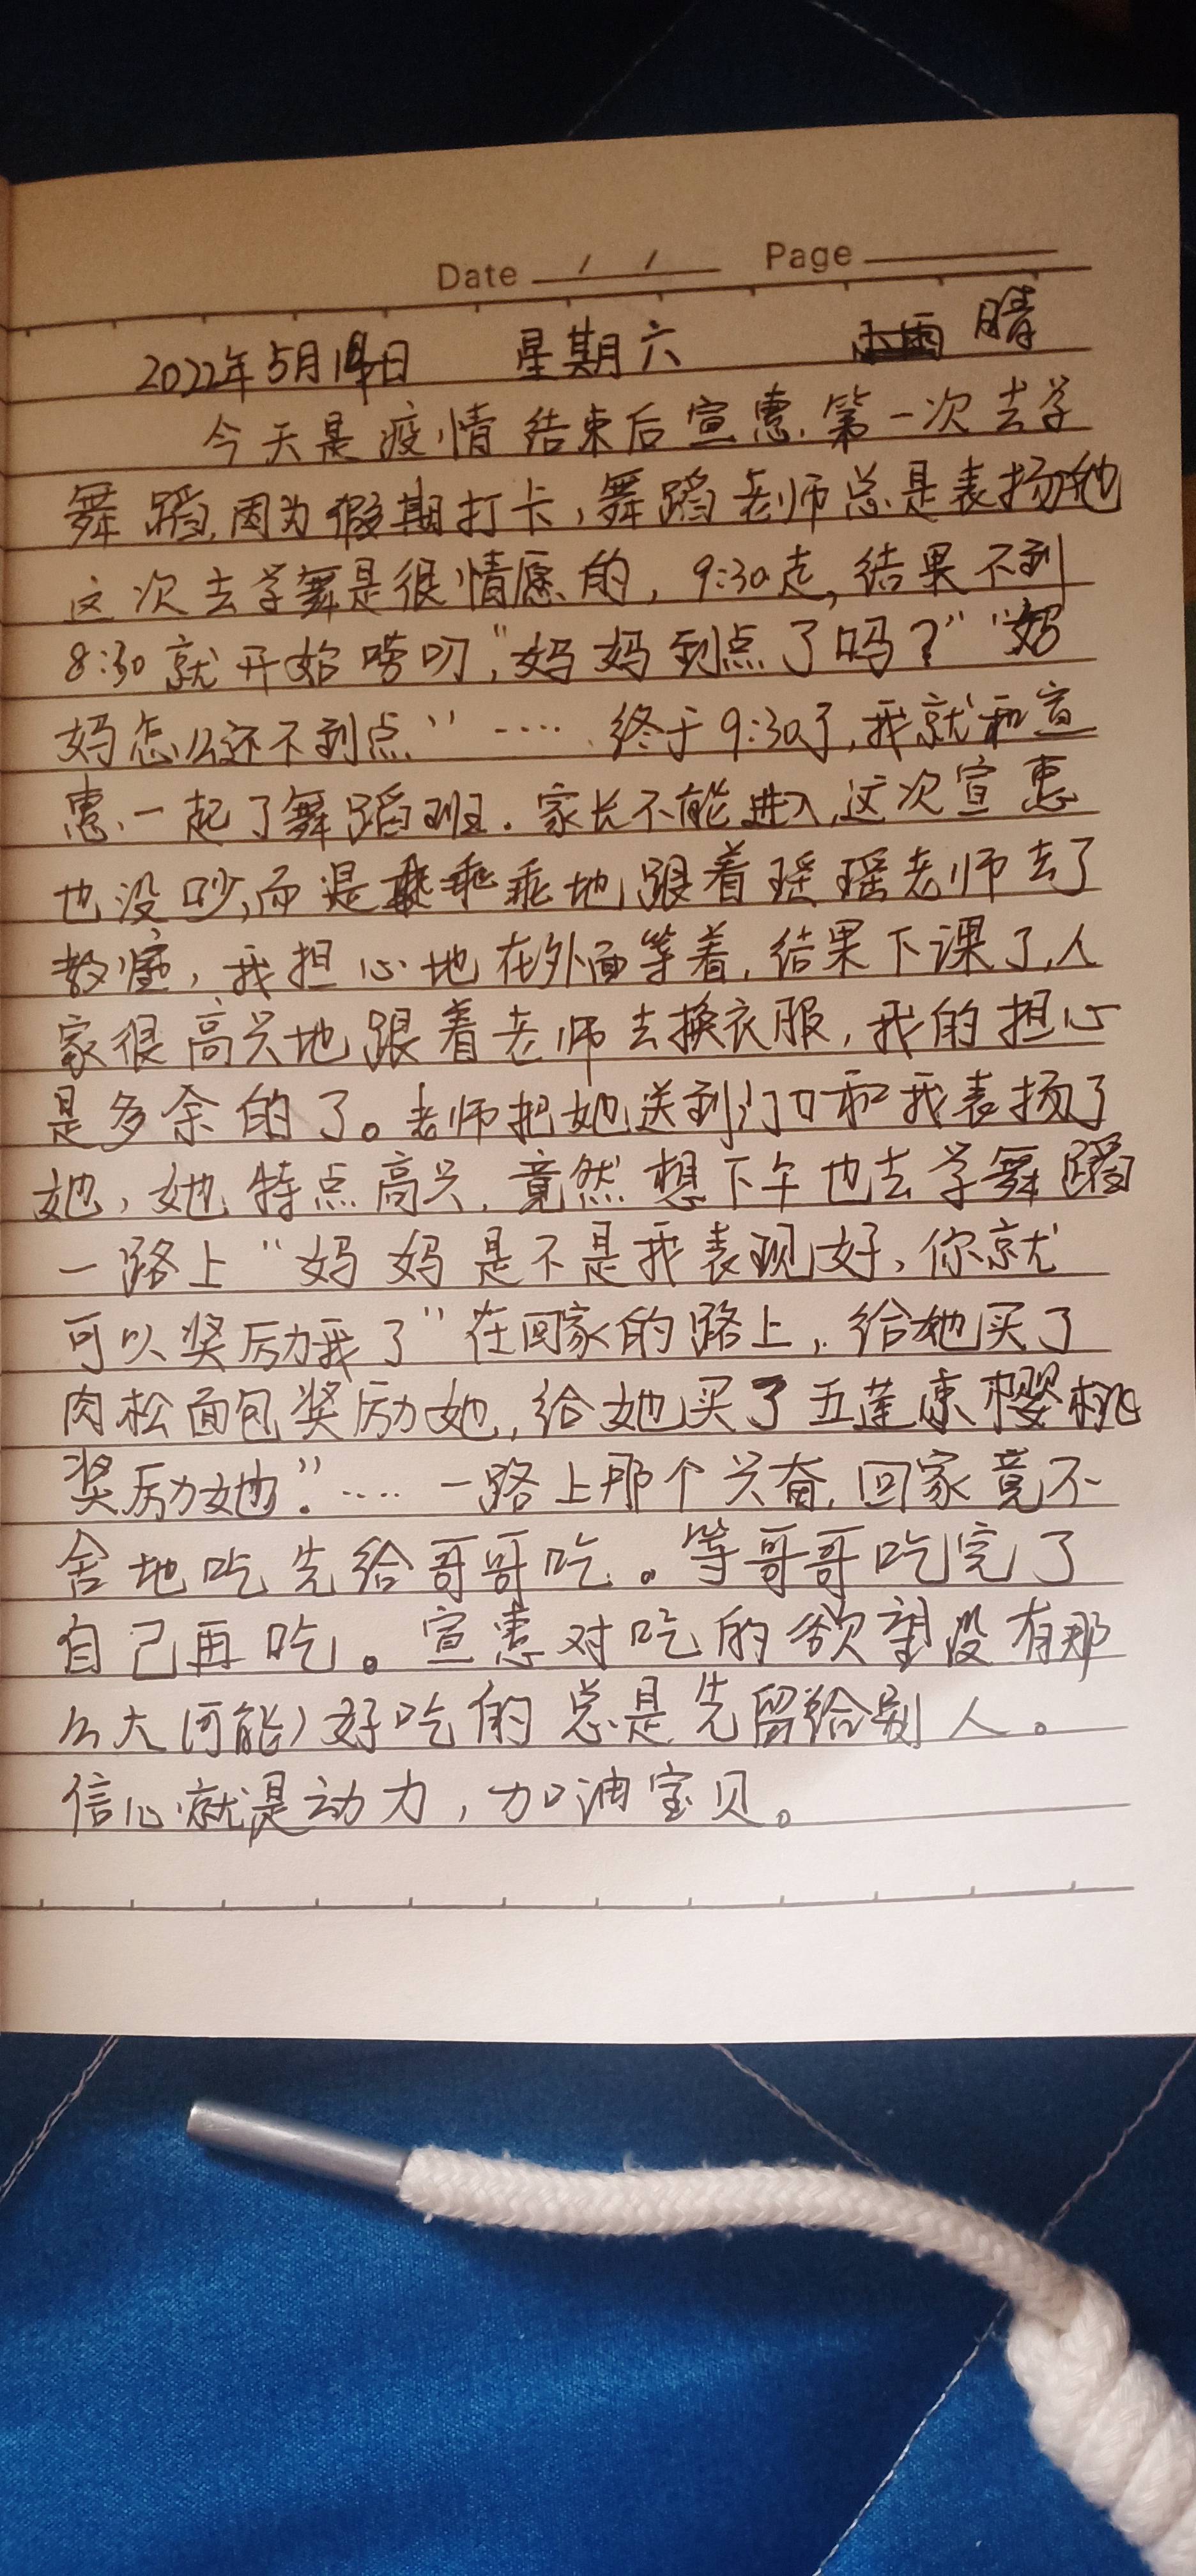 Date / / Page
2022年5月14日 星期六 晴
今天是疫情结束后宣惠第一次去学
舞蹈,因为假期打卡,舞蹈老师总是表扬她
这次去学舞是很情愿的,9:30走,结果不到
8:30就开始唠叨,"妈妈到点了吗?""妈
妈怎么还不到点"……终于9:30了,我就和宣
惠一起了舞蹈班.家长不能进入,这次宣惠
也没吵,而是乖乖地跟着瑶瑶老师去了
教室,我担心地在外面等着,结果下课了,人
家很高兴地跟着老师去换衣服,我的担心
是多余的了。老师把她送到门口和我表扬了
她,她特点高兴,竟然想下午也去学舞蹈
一路上"妈妈是不是我表现好,你就
可以奖励我了"在回家的路上,给她买了
肉松面包奖励她,给她买了五莲东樱桃
奖励她"……一路上那个兴奋,回家竟不
舍地吃先给哥哥吃。等哥哥吃完了
自己再吃。宣惠对吃的欲望没有那
么大(可能)好吃的总是先留给别人。
信心就是动力,加油宝贝。